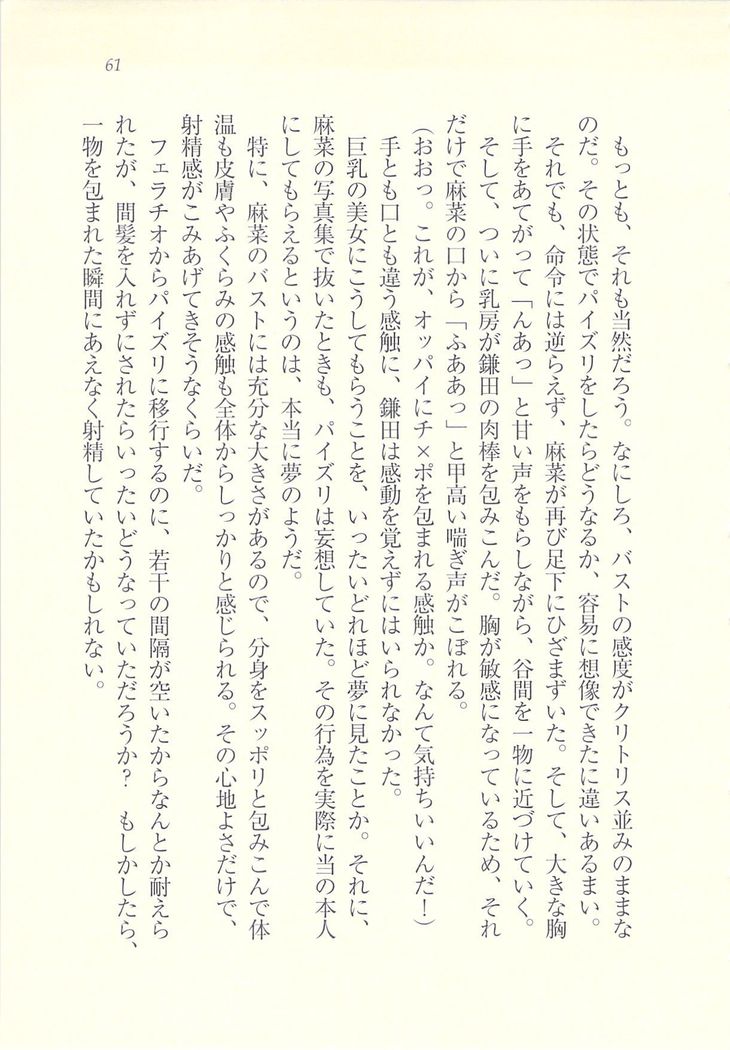 61
もっとも、それも当然だろう。なにしろ、バストの感度がクリトリス並みのままな
のだ。その状態でパイズリをしたらどうなるか、容易に想像できたに違いあるまい。
それでも、命令には逆らえず、麻菜が再び足下にひざまずいた。そして、大きな胸
に手をあてがって「んあっ」と甘い声をもらしながら、谷間を一物に近づけていく。
そして、ついに乳房が鎌田の肉棒を包みこんだ。胸が敏感になっているため、それ
だけで麻菜の口から「ふああっ」と甲高い喘ぎ声がこぼれる。
(おおっ。これが、オッパイにチ×ポを包まれる感触か。なんて気持ちいいんだ!)
手とも口とも違う感触に、鎌田は感動を覚えずにはいられなかった。
巨乳の美女にこうしてもらうことを、いったいどれほど夢に見たことか。それに、
麻菜の写真集で抜いたときも、パイズリは妄想していた。その行為を実際に当の本人
にしてもらえるというのは、本当に夢のようだ。
特に、麻菜のバストには充分な大きさがあるので、分身をスッポリと包みこんで体
温も皮膚やふくらみの感触も全体からしっかりと感じられる。その心地よさだけで、
射精感がこみあげてきそうなくらいだ。
フェラチオからパイズリに移行するのに、若干の間隔が空いたからなんとか耐えら
れたが、間髪を入れずにされたらいったいどうなっていただろうか? もしかしたら、
一物を包まれた瞬間にあえなく射精していたかもしれない。